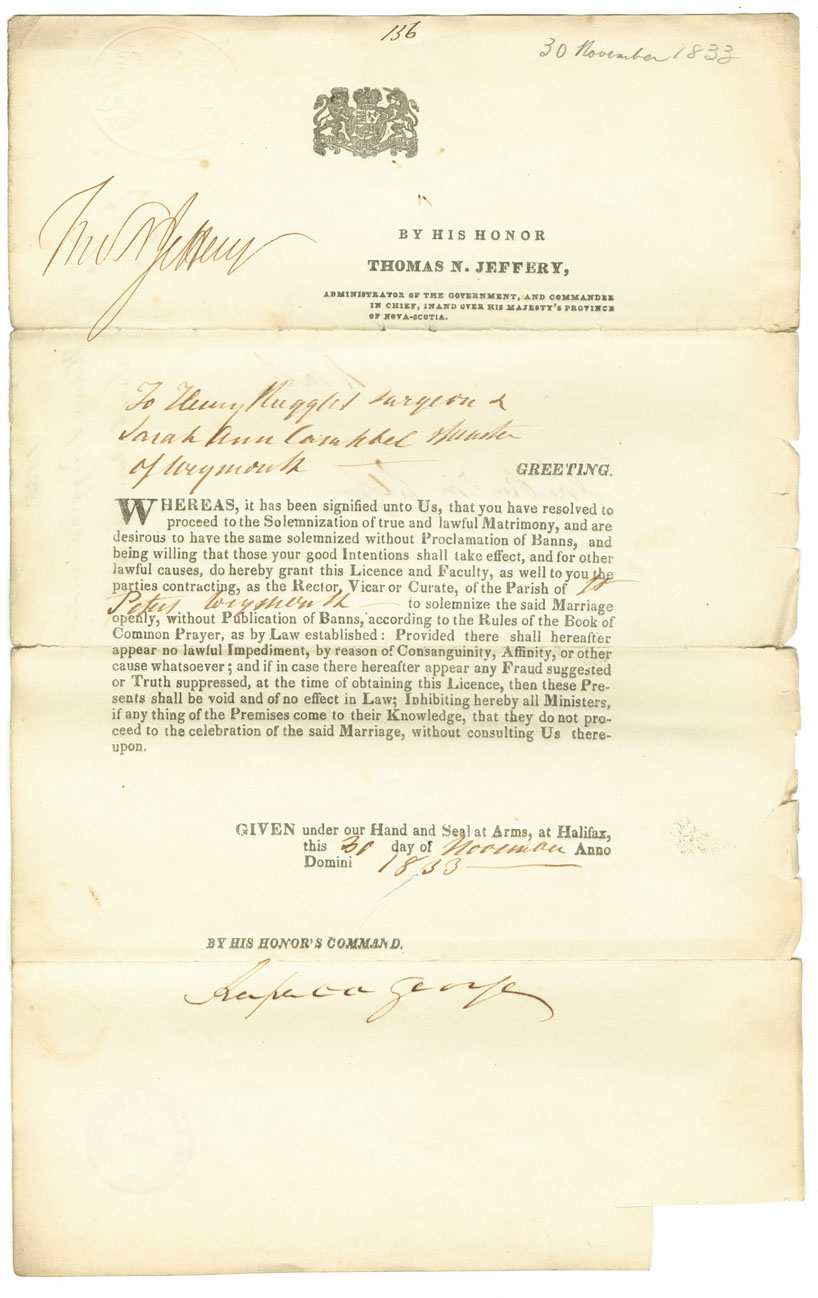 136
30 November 1833
Tho N Jeffery
BY HIS HONOR
THOMAS N. JEFFERY,
ADMINISTRATOR OF THE GOVERNMENT, AND COMMANDER
IN CHIEF, IN AND OVER HIS MAJESTY'S PROVINCE
OF NOVA-SCOTIA.
To Henry Ruggles surgeon &
Sarah Ann Campbel Spinster
of Weymouth
GREETING.
WHEREAS, it has been signified unto Us, that you have resolved to
proceed to the Solemnization of true and lawful Matrimony, and are
desirous to have the same solemnized without Proclamation of Banns, and
being willing that those your good Intentions shall take effect, and for other
lawful causes, do hereby grant this Licence and Faculty, as well to you the
parties contracting, as the Rector, Vicar or Curate, of the Parish of St
Peters Weymouth to solemnize the said Marriage
openly, without Publication of Banns, according to the Rules of the Book of
Common Prayer, as by Law established: Provided there shall hereafter
appear no lawful Impediment, by reason of Consanguinity, Affinity, or other
cause whatsoever; and if in case there hereafter appear any Fraud suggested
or Truth suppressed, at the time of obtaining this Licence, then these Pre-
sents shall be void and of no effect in Law; Inhibiting hereby all Ministers,
if any thing of the Premises come to their Knowledge, that they do not pro-
ceed to the celebration of the said Marriage, without consulting Us there-
upon.
GIVEN under our Hand and Seal at Arms, at Halifax,
this 30 day of November Anno
Domini 1833
BY HIS HONOR'S COMMAND.
George